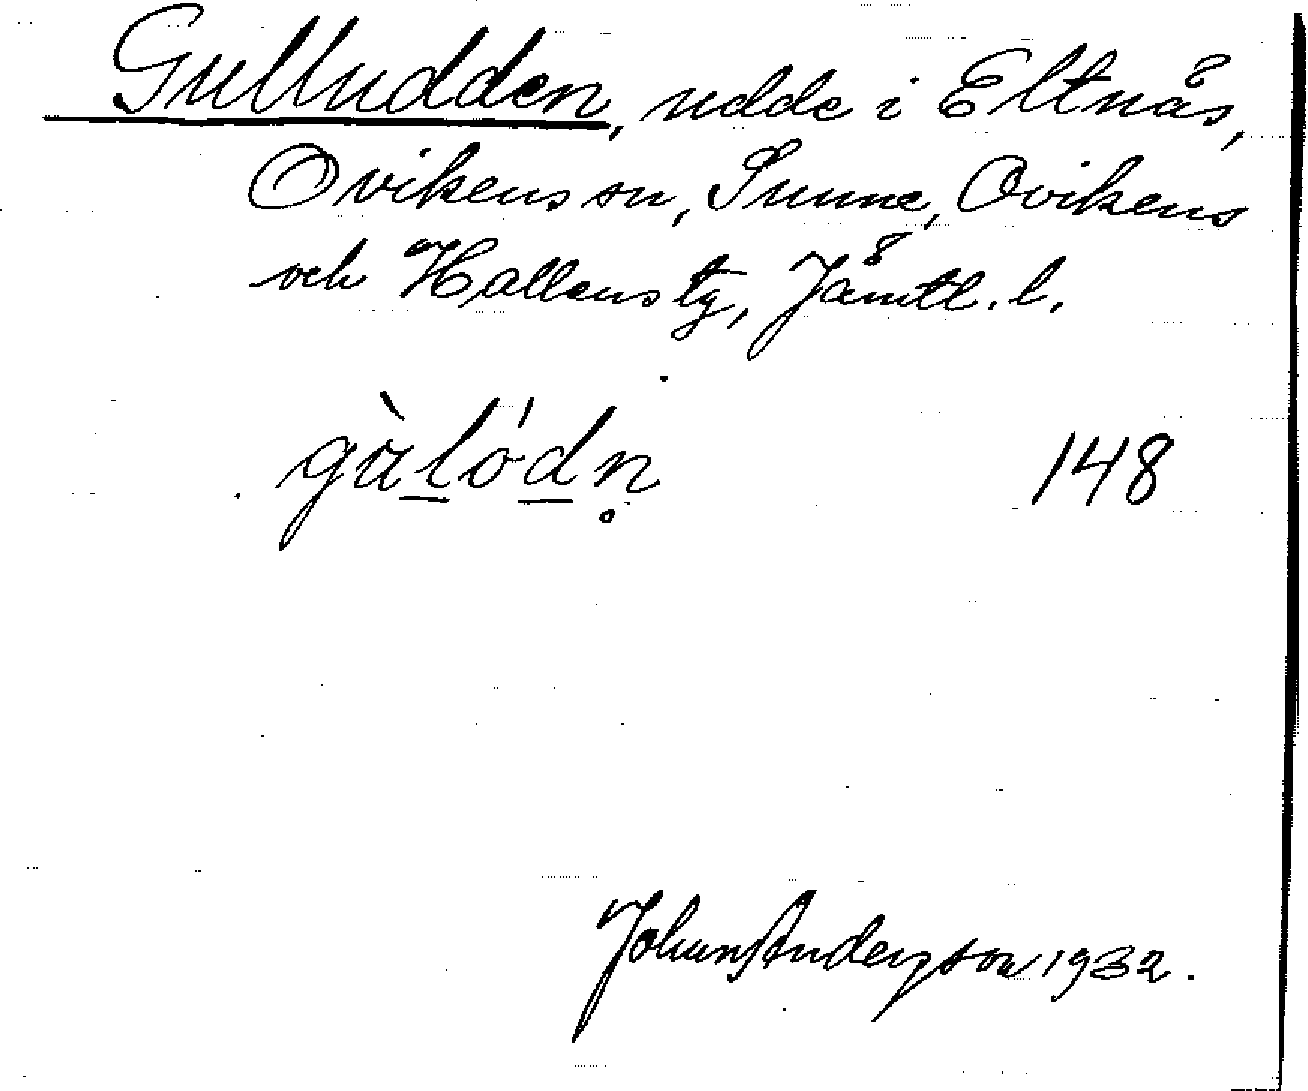 Gulludden, udde i Eltnäs,
Ovikens sn, Sunne, Ovikens
och Hallens tg, Jämtl. l.
gàlódn̥ 148
Johan Anderson 1932.